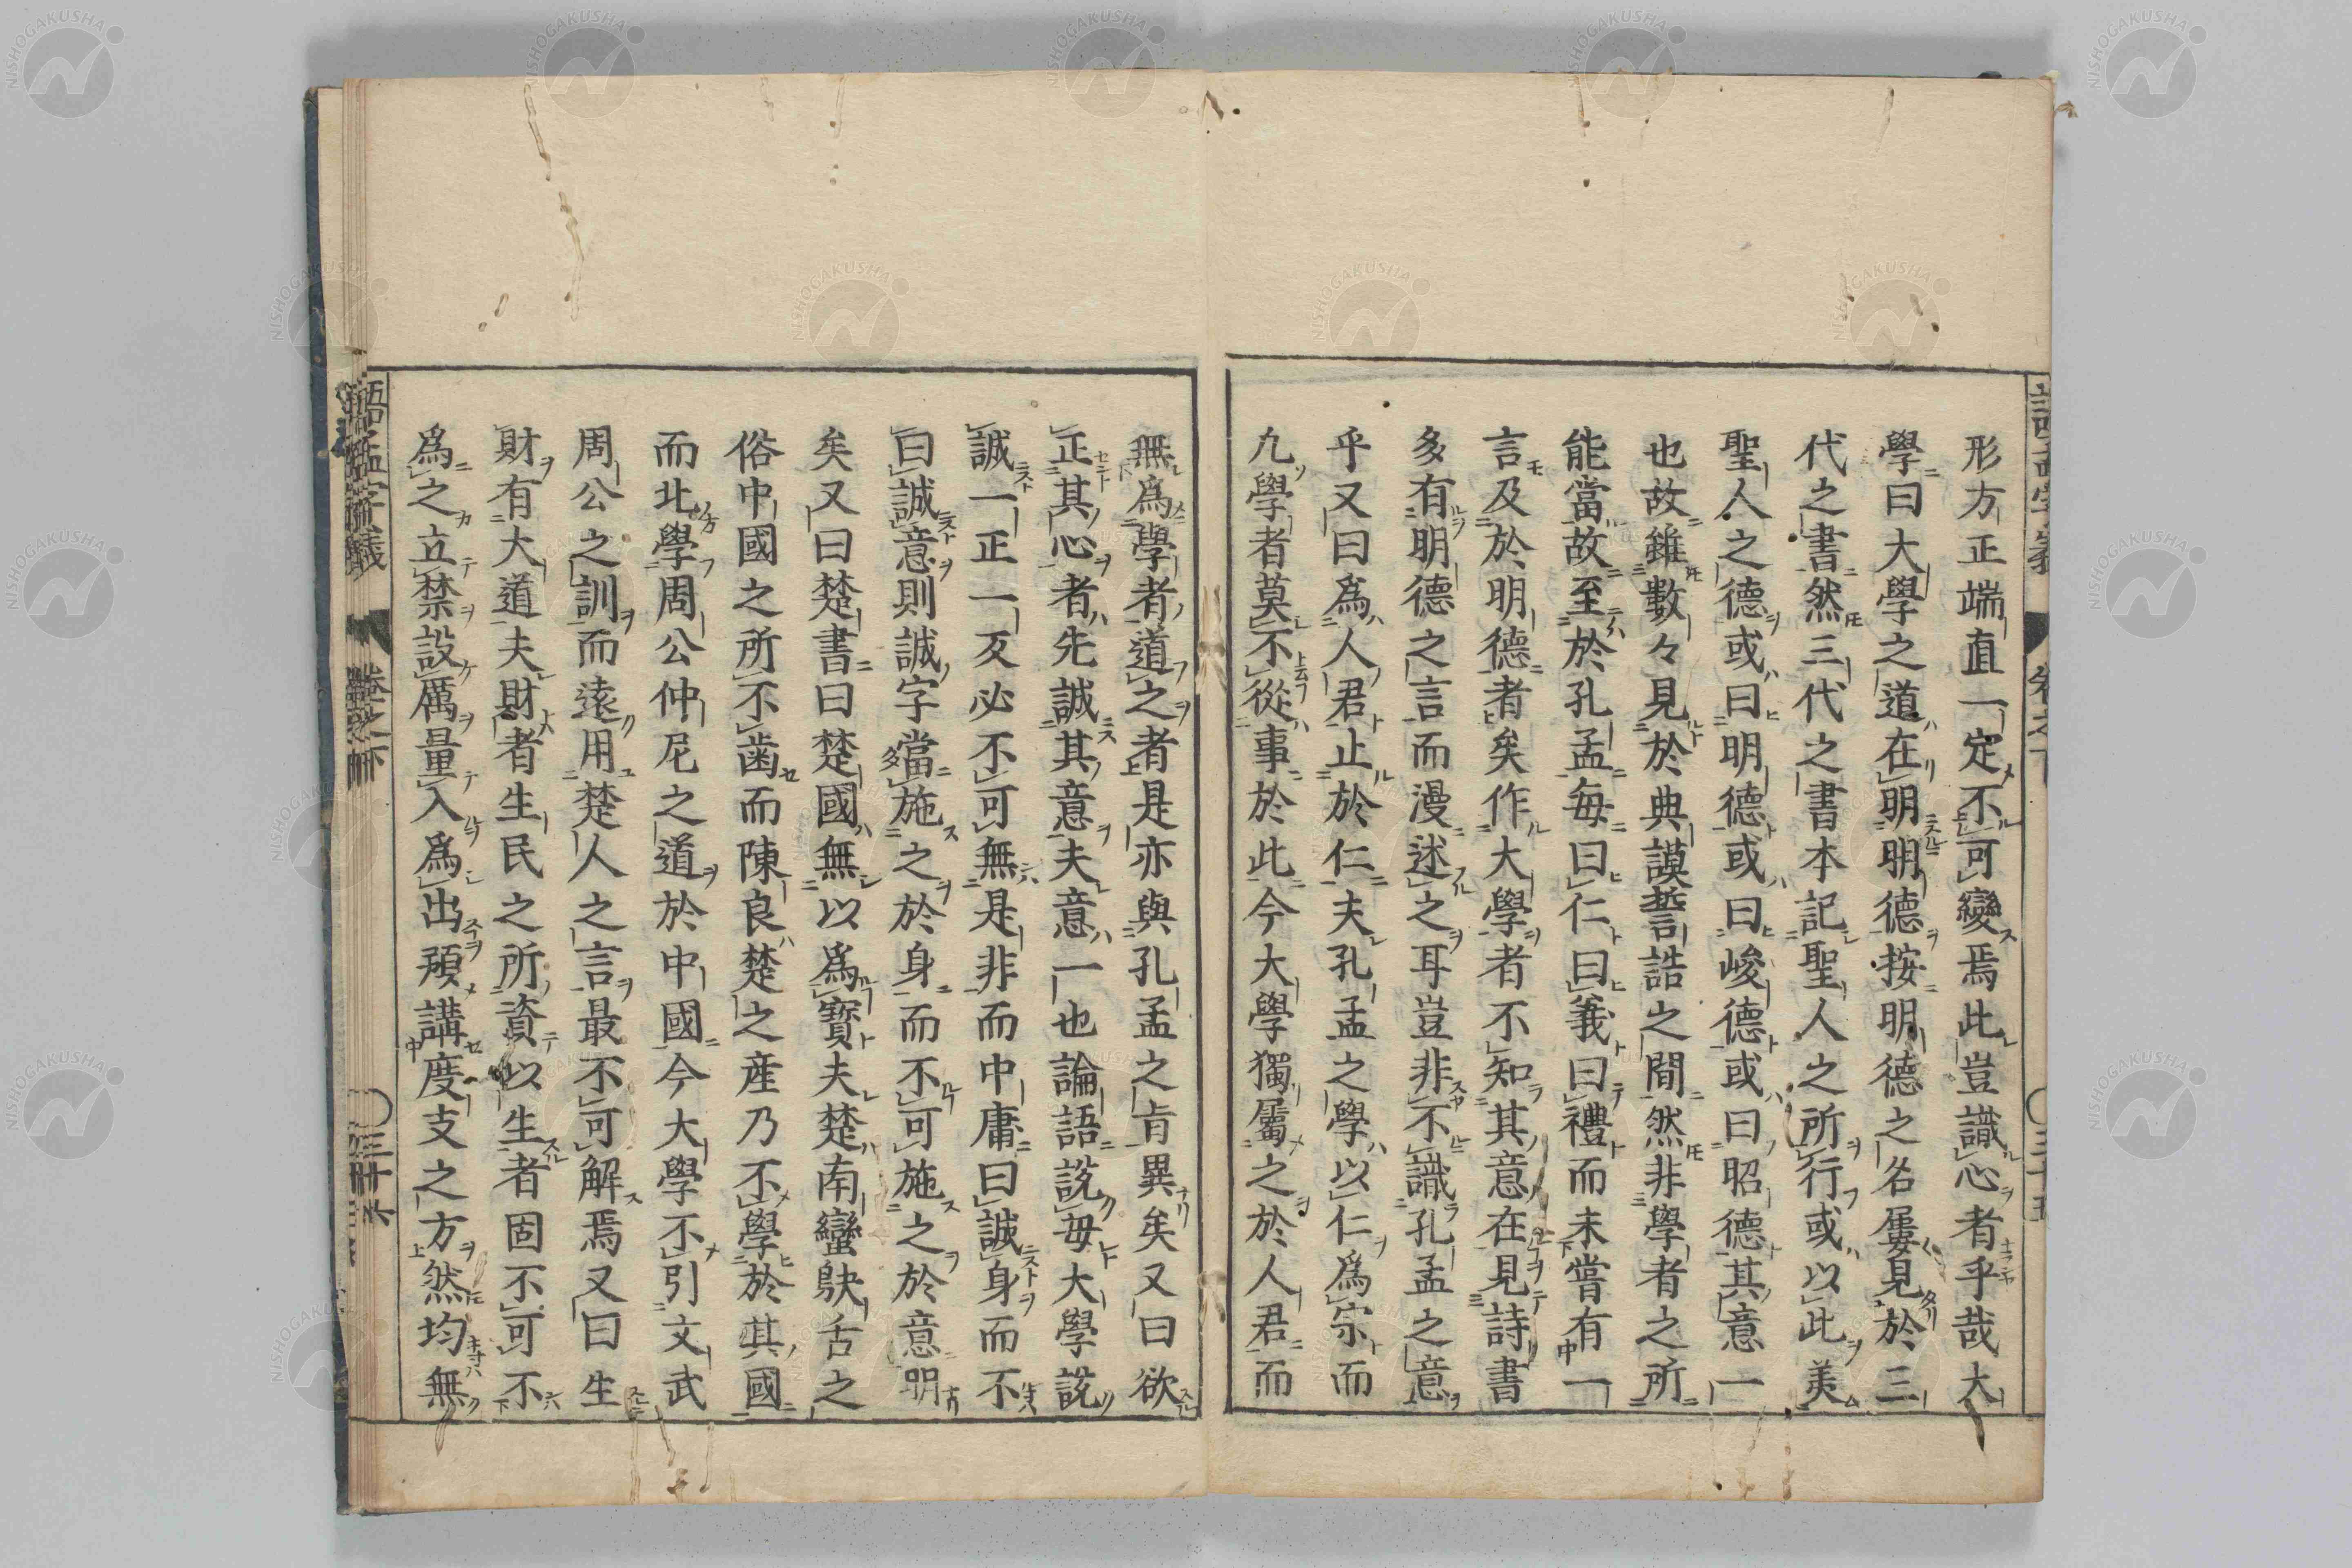 形方正端直一定不可變焉此豈識心者乎哉大
學曰大學之道在明明德按明德之名屢見於三
代之書然三代之書本記聖人之所行或以此美
聖人之德或曰明德或曰峻德或曰昭德其意一
也故雖數々見於典謨誓誥之間然非學者之所
能當故至於孔孟每曰仁曰義曰禮而未嘗有一
言及於明德者矣作大學者不知其意在見詩書
多有明德之言而漫述之耳豈非不識孔孟之意
乎又曰為人君止於仁夫孔孟之學以仁為宗而
凢學者莫不從事於此今大學獨屬之於人君而
無為學者道之者是亦與孔孟之旨異矣又曰欲
正其心者先誠其意夫意一也論語說毋大學說
誠一正一反必不可無是非而中庸曰誠身而不
曰誠意則誠字當施之於身而不可施之於意明
矣又曰楚書曰楚國無以為寶夫楚南蠻鴃舌之
俗中國之所不齒而陳良楚之產乃不學於其國
而北學周公仲尼之道於中國今大學不引文武
周公之訓而遠用楚人之言最不可解焉又曰生
財有大道夫財者生民之所資以生者固不可不
為之立禁設厲量入為出預講度支之方然均無
語孟字義 卷之下 三十六
NISHOGAKUSHA